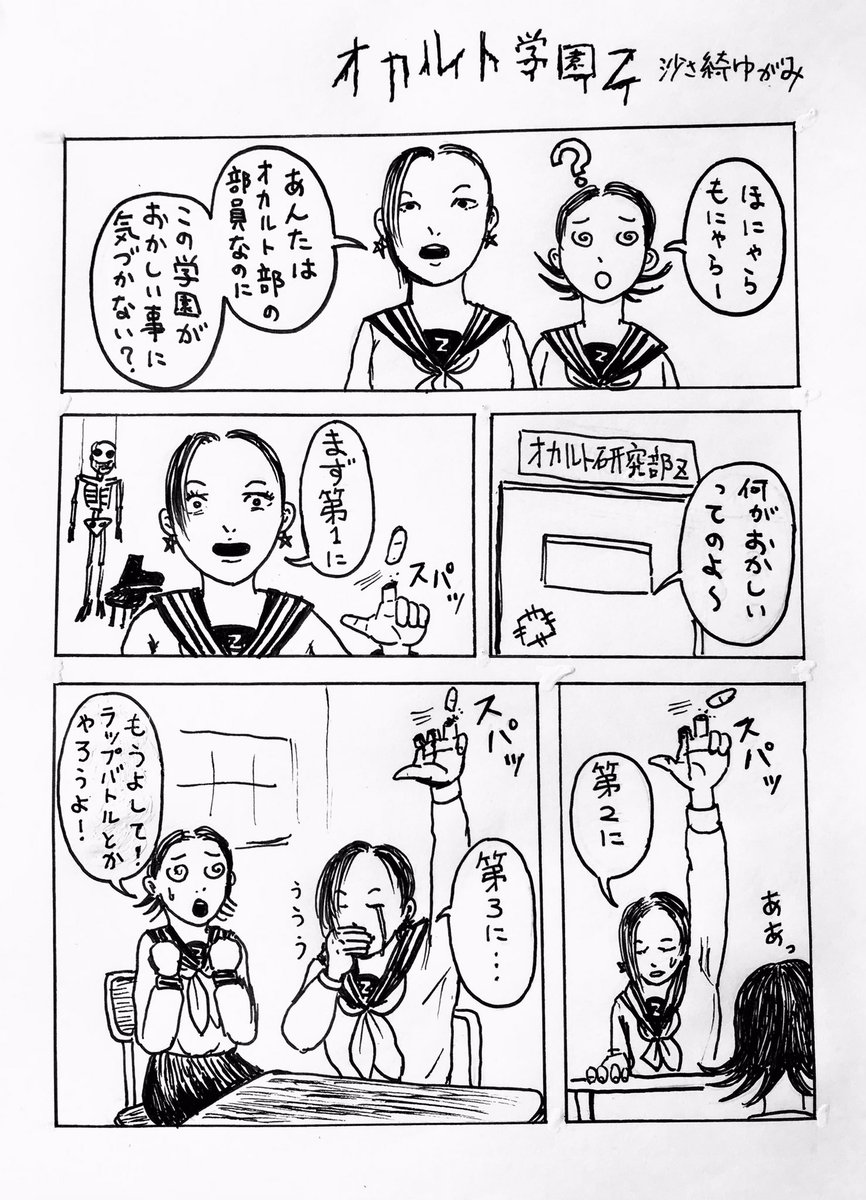 オカルト学園Z
沙き綺ゆがみ
ほにゃら
もにゃらー
?
あんたは
オカルト部の
部員なのに
この学園が
おかしい事に
気づかない?
Z
Z
オカルト研究部Z
何がおかしい
ってのよ〜
まず第1に
スパッ
Z
第2に
スパッ
ああっ
Z
第3に・・・
スパッ
ううう
もうよして!
ラップバトルとか
やろうよ!
Z
Z